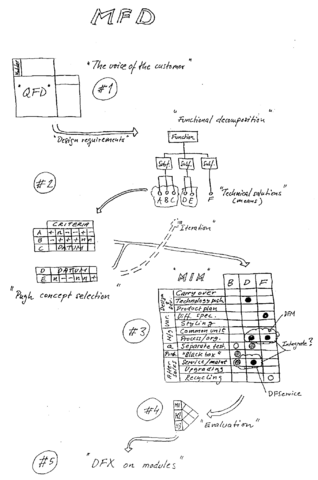 MFD
"The voice of the customer"
"QFD"
#1
"Design requirements"
"Functional decomposition"
Function
Subf.
Subf.
Subf.
#2
A B C
D E
F
"Technical solutions"
(means)
CRITERIA
A + n - - + -
B - + + + n n
C DATUM
"Iteration"
D DATUM
E n - n n n +
"Pugh concept selection"
"MIM"
B D F
Carry over
Technology push
Product plan
Diff. spec.
Styling
Common unit
Process/org.
Separate test.
"Black box"
Service/maint
Upgrading
Recycling
#3
DFM
Integrate?
DFService
#4
"Evaluation"
#5
"DFX on modules"